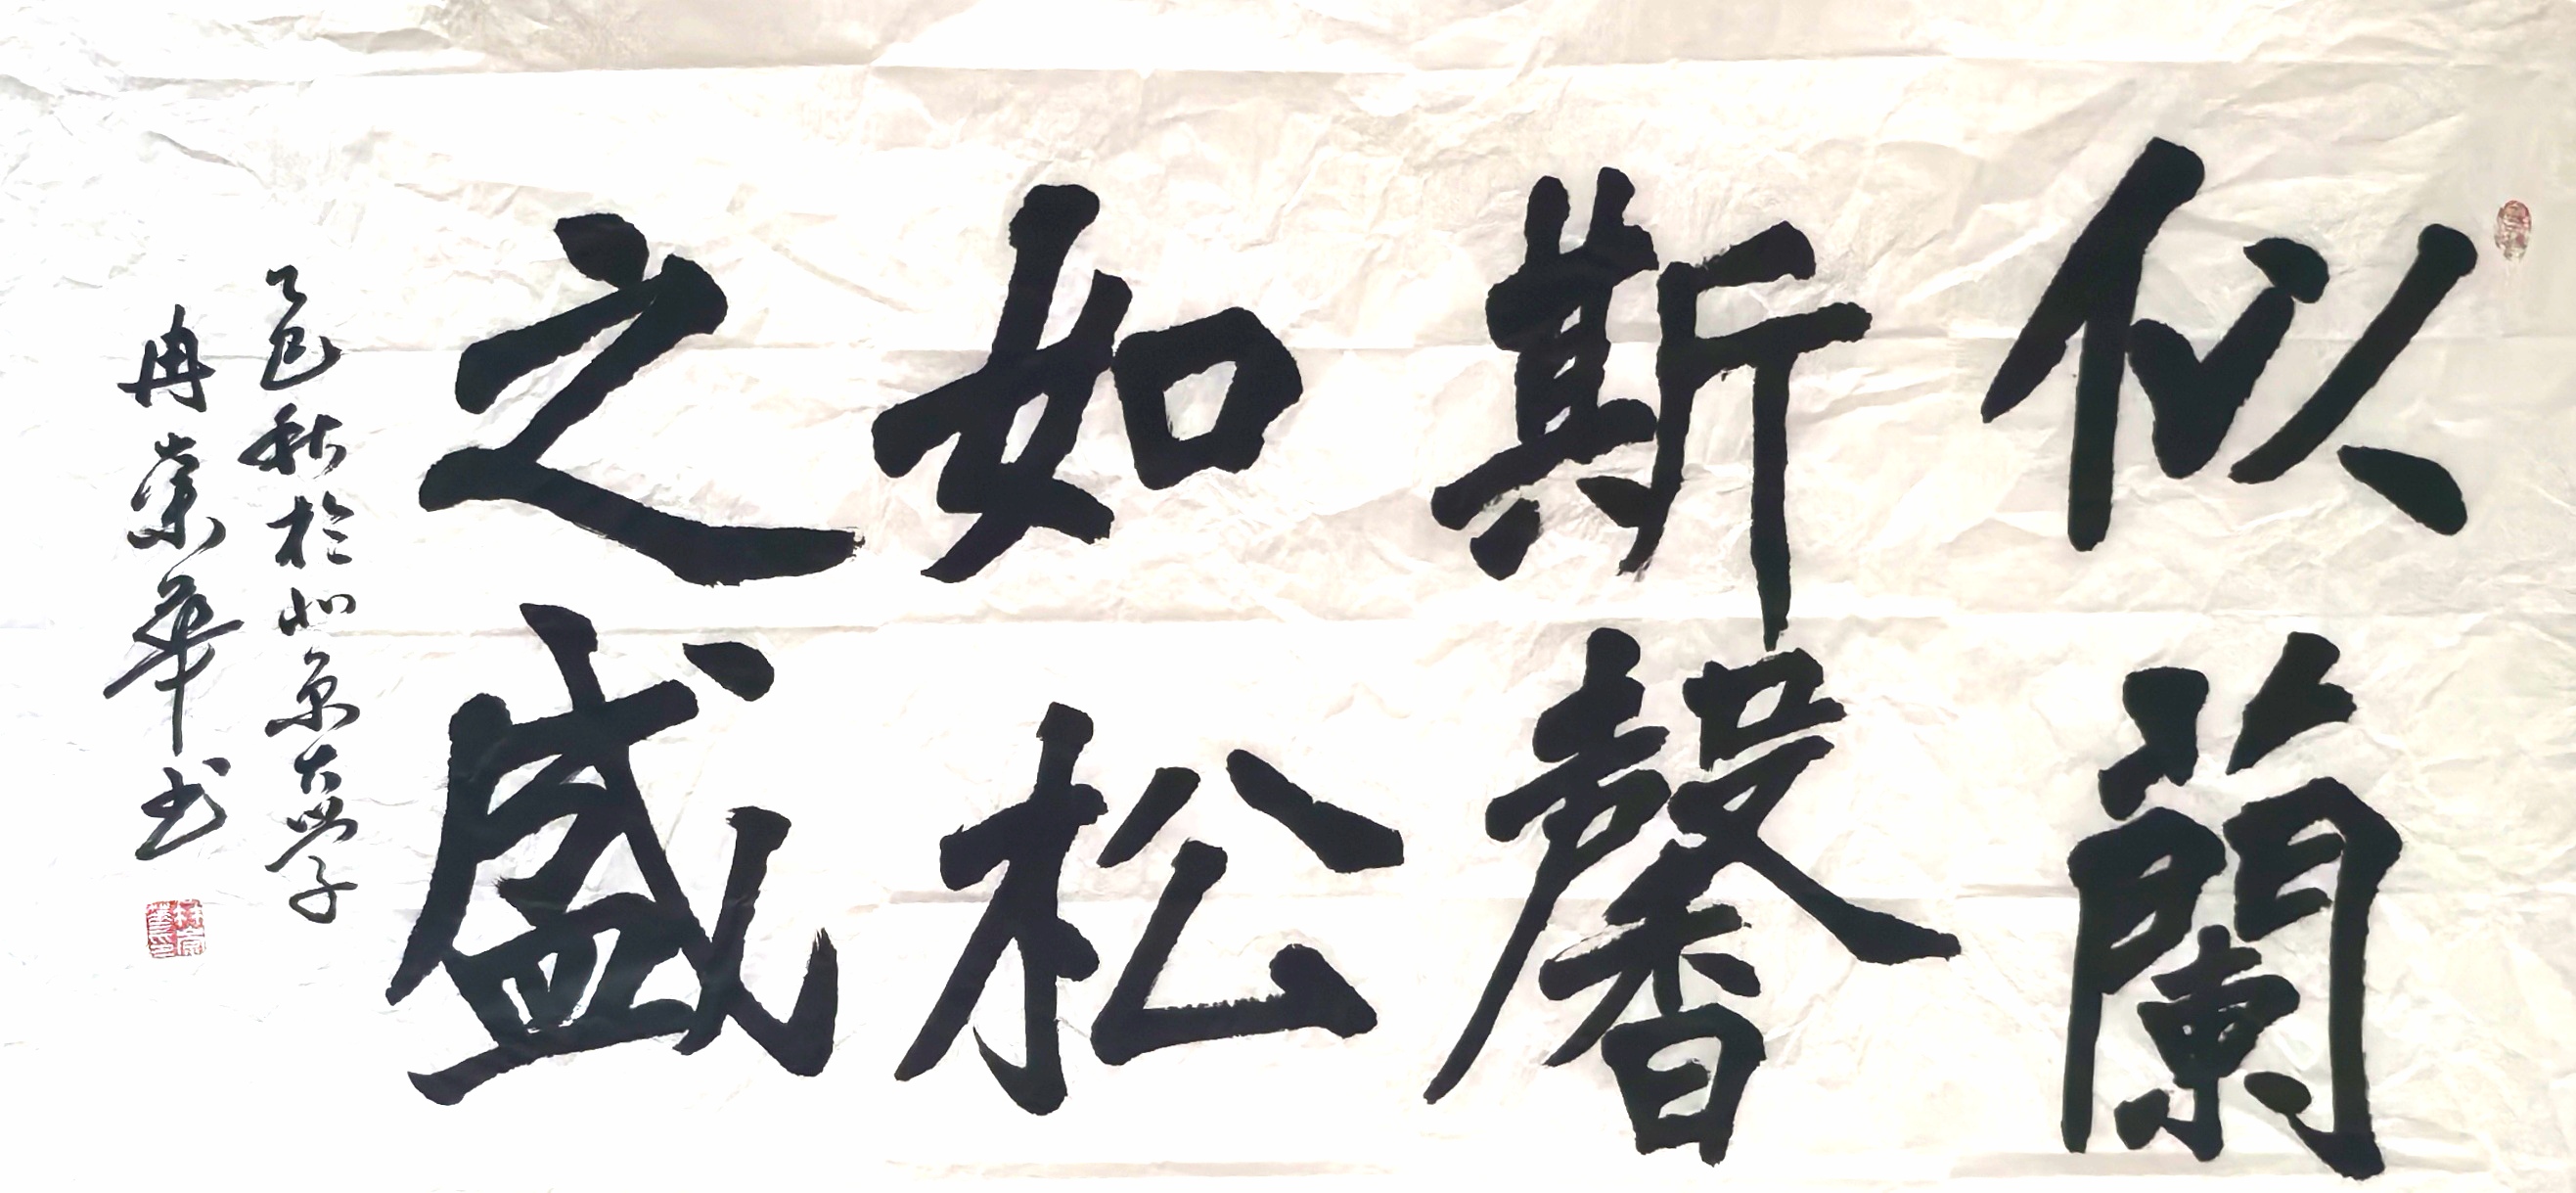 似蘭
斯馨
如松
之盛
乙巳秋於北京大学
冉榮華书